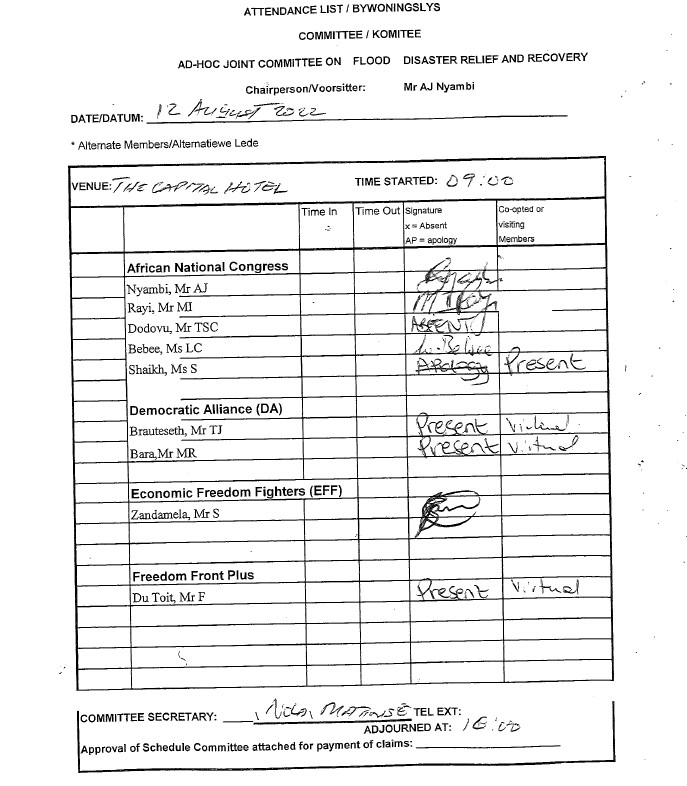 ATTENDANCE LIST / BYWONINGSLYS
COMMITTEE / KOMITEE
AD-HOC JOINT COMMITTEE ON FLOOD DISASTER RELIEF AND RECOVERY
Chairperson/Voorsitter: Mr AJ Nyambi
DATE/DATUM: 12 AUGUST 2022
* Alternate Members/Alternatiewe Lede
VENUE: THE CAPITAL HOTEL TIME STARTED: 09:00
Time In Time Out Signature Co-opted or
x = Absent visiting
AP = apology Members
African National Congress
Nyambi, Mr AJ
Rayi, Mr MI
Dodovu, Mr TSC ABSENT
Bebee, Ms LC
Shaikh, Ms S APOLOGY Present
Democratic Alliance (DA)
Brauteseth, Mr TJ Present Virtual
Bara,Mr MR Present Virtual
Economic Freedom Fighters (EFF)
Zandamela, Mr S
Freedom Front Plus
Du Toit, Mr F Present Virtual
COMMITTEE SECRETARY: TEL EXT:
ADJOURNED AT: 16:00
Approval of Schedule Committee attached for payment of claims: